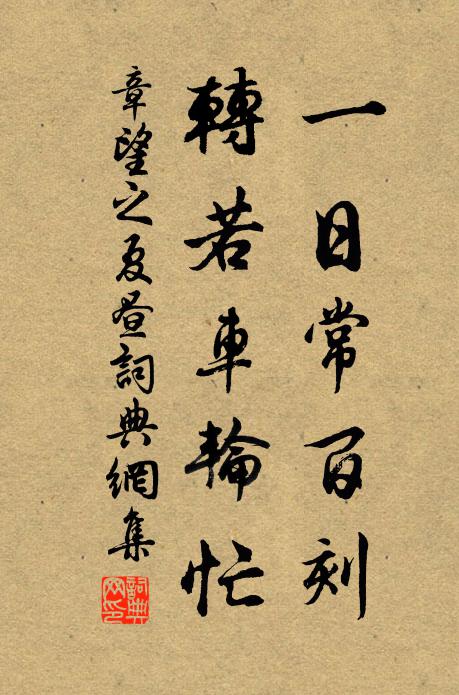 一日常百刻
轉若車輪忙
章望之夏晝詞典網集
詞典网印